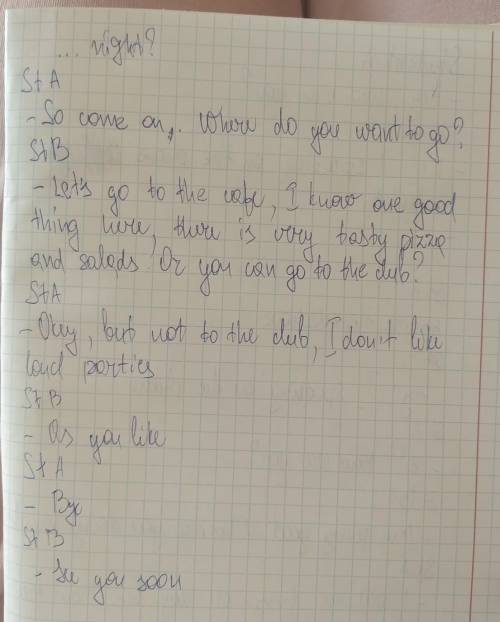 ... night?
St A
- So come on,. Where do you want to go?
St B
- Let's go to the cafe, I know one good
thing here, there is very tasty pizza
and salads Or you can go to the club?
St A
- Okay, but not to the club, I don't like
loud parties
St B
- As you like
St A
- Bye
St B
- See you soon